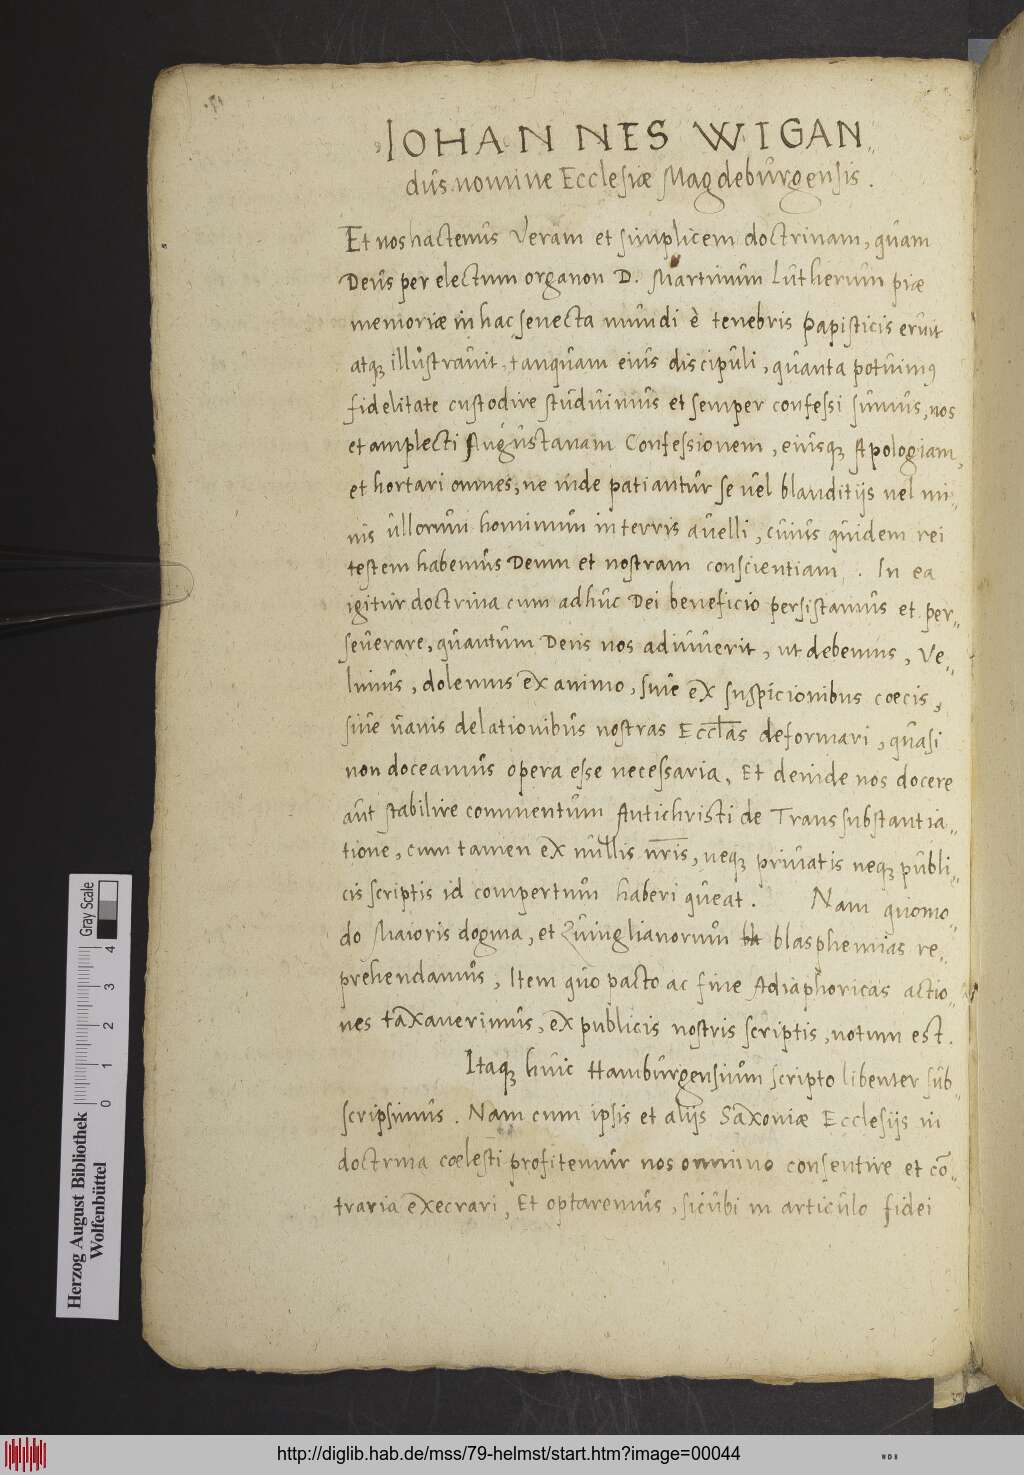 IOHANNES WIGAN„
dus nomine Ecclesiæ Magdeburgensis.
Et nos hactenus Veram et simplicem doctrinam, quam
Deus per electum organon D. Martinum Lutherum piæ
memoriæ in hac senecta mundi è tenebris Papisticis eruit
atq; illustrauit, tanquam eius discipuli, quanta potuimus
fidelitate custodire studuimus et semper confessi sumus, nos
et amplecti Augustanam Confessionem, eiusq; Apologiam,
et hortari omnes, ne inde patiantur se uel blanditijs uel mi„
nis ullorum hominum in terris auelli, cuius quidem rei
testem habemus Deum et nostram conscientiam. In ea
igitur doctrina cum adhuc Dei beneficio persistamus et per„
seuerare, quantum Deus nos adiuuerit, ut debemus, Ve„
limus, dolemus ex animo, siue ex suspicionibus coecis,
siue uanis delationibus nostras Eccl̄as deformari, quasi
non doceamus opera esse necessaria, Et deinde nos docere
aut stabilire commentum Antichristi de Transsubstantia„
tione, cum tamen ex nullis nr̄is, neq; priuatis neq; publi„
cis scriptis id compertum haberi queat. Nam quomo„
do Maioris dogma, et Zuinglianorum blasphemias re„
prehendamus, Item quo pacto ac fine Adiaphoricas actio„
nes taxauerimus, ex publicis nostris scriptis, notum est.
Itaq; huic Hamburgensium scripto libenter sub„
scripsimus. Nam cum ipsis et alijs Saxoniæ Ecclesijs in
doctrina cœlesti profitemur nos omnino consentire et cō„
traria execrari, Et optaremus, sicubi in articulo fidei
Gray Scale
0 1 2 3 4
Herzog August Bibliothek
Wolfenbüttel
http://diglib.hab.de/mss/79-helmst/start.htm?image=00044
WDB